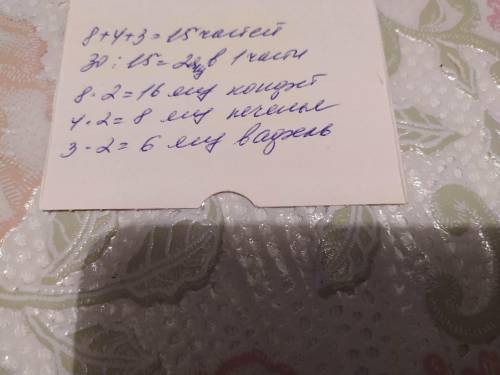 8+4+3=15 частей
30:15=2 ящ в 1 части
8·2=16 ящ конфет
4·2=8 ящ печенья
3·2=6 ящ вафель